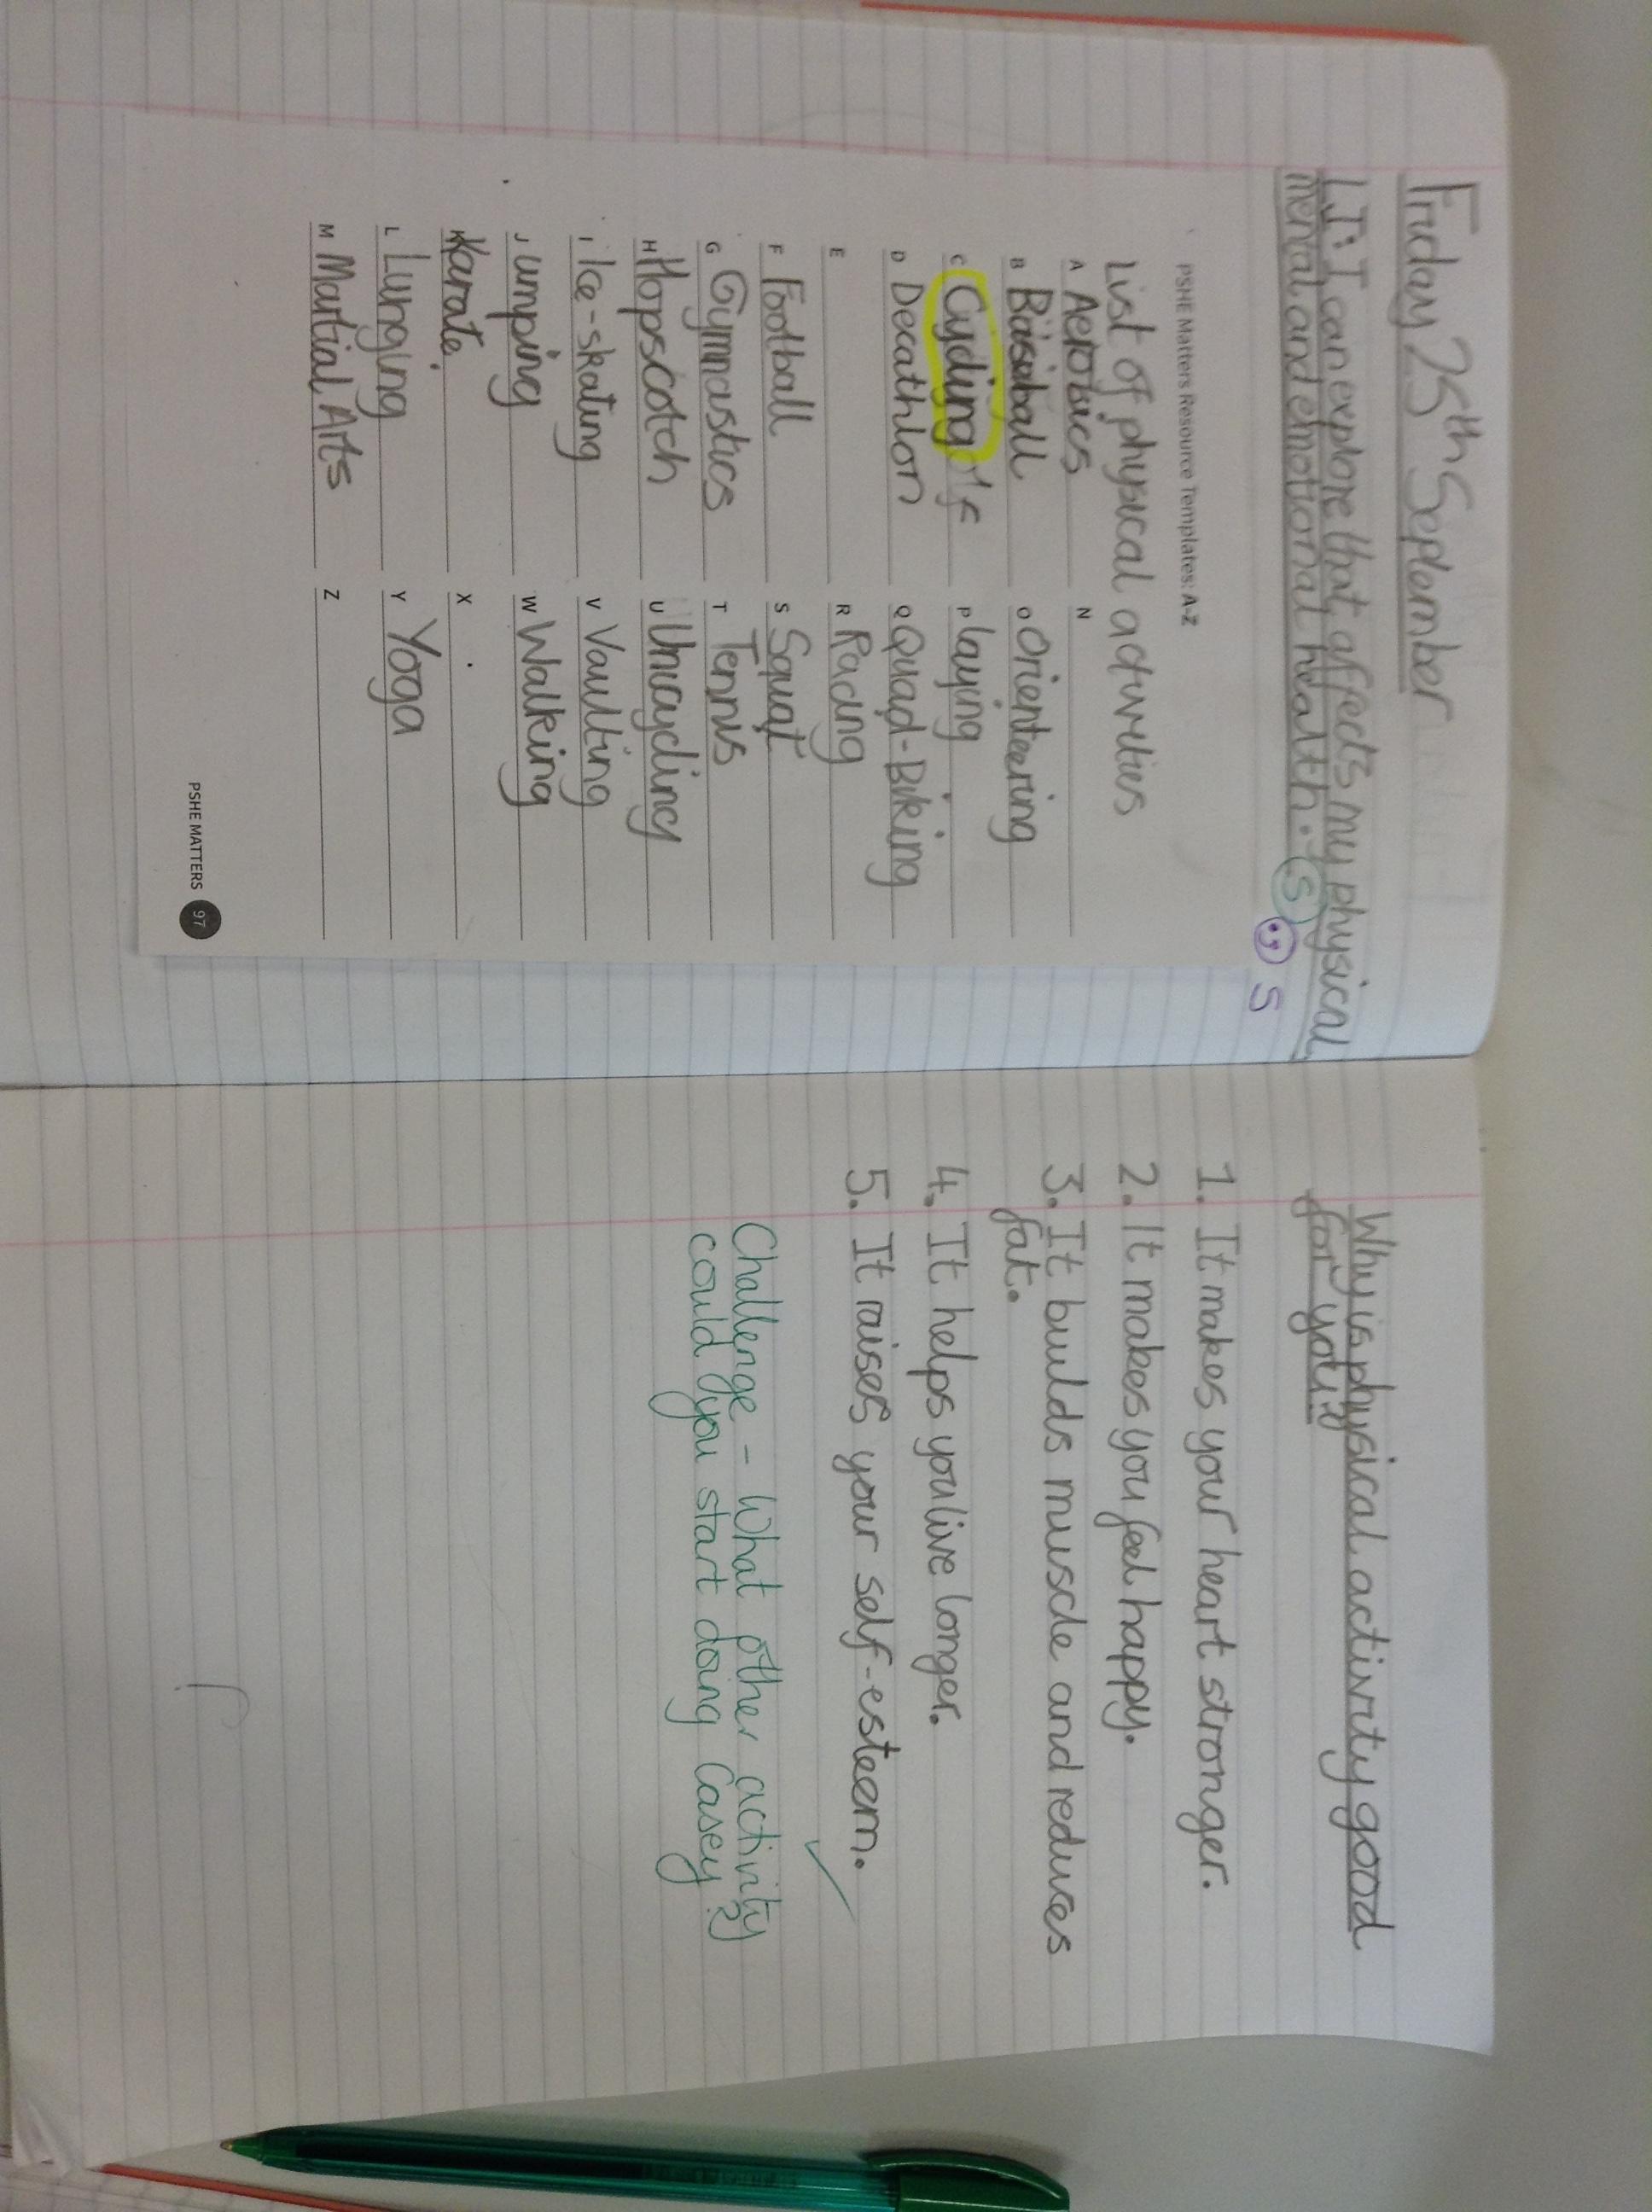 Friday 25th September
LI: I can explore that affects my physical,
mental and emotional health. S
S
PSHE Matters Resource Templates: A-Z
List of physical activities
A Aerobics
B Baseball
C Cycling
D Decathlon
E
F Football
G Gymnastics
H Hopscotch
I Ice-skating
J umping
K Karate
L Lunging
M Martial Arts
N
O Orienteering
P laying
Q Quad-Biking
R Racing
S Squat
T Tennis
U Unicycling
V Vaulting
W Walking
X
Y Yoga
Z
PSHE MATTERS 97
Why is physical activity good
for you?
1. It makes your heart stronger.
2. It makes you feel happy.
3. It builds muscle and reduces
fat.
4. It helps you live longer.
5. It raises your self-esteem.
Challenge - What other activity
could you start doing Casey?